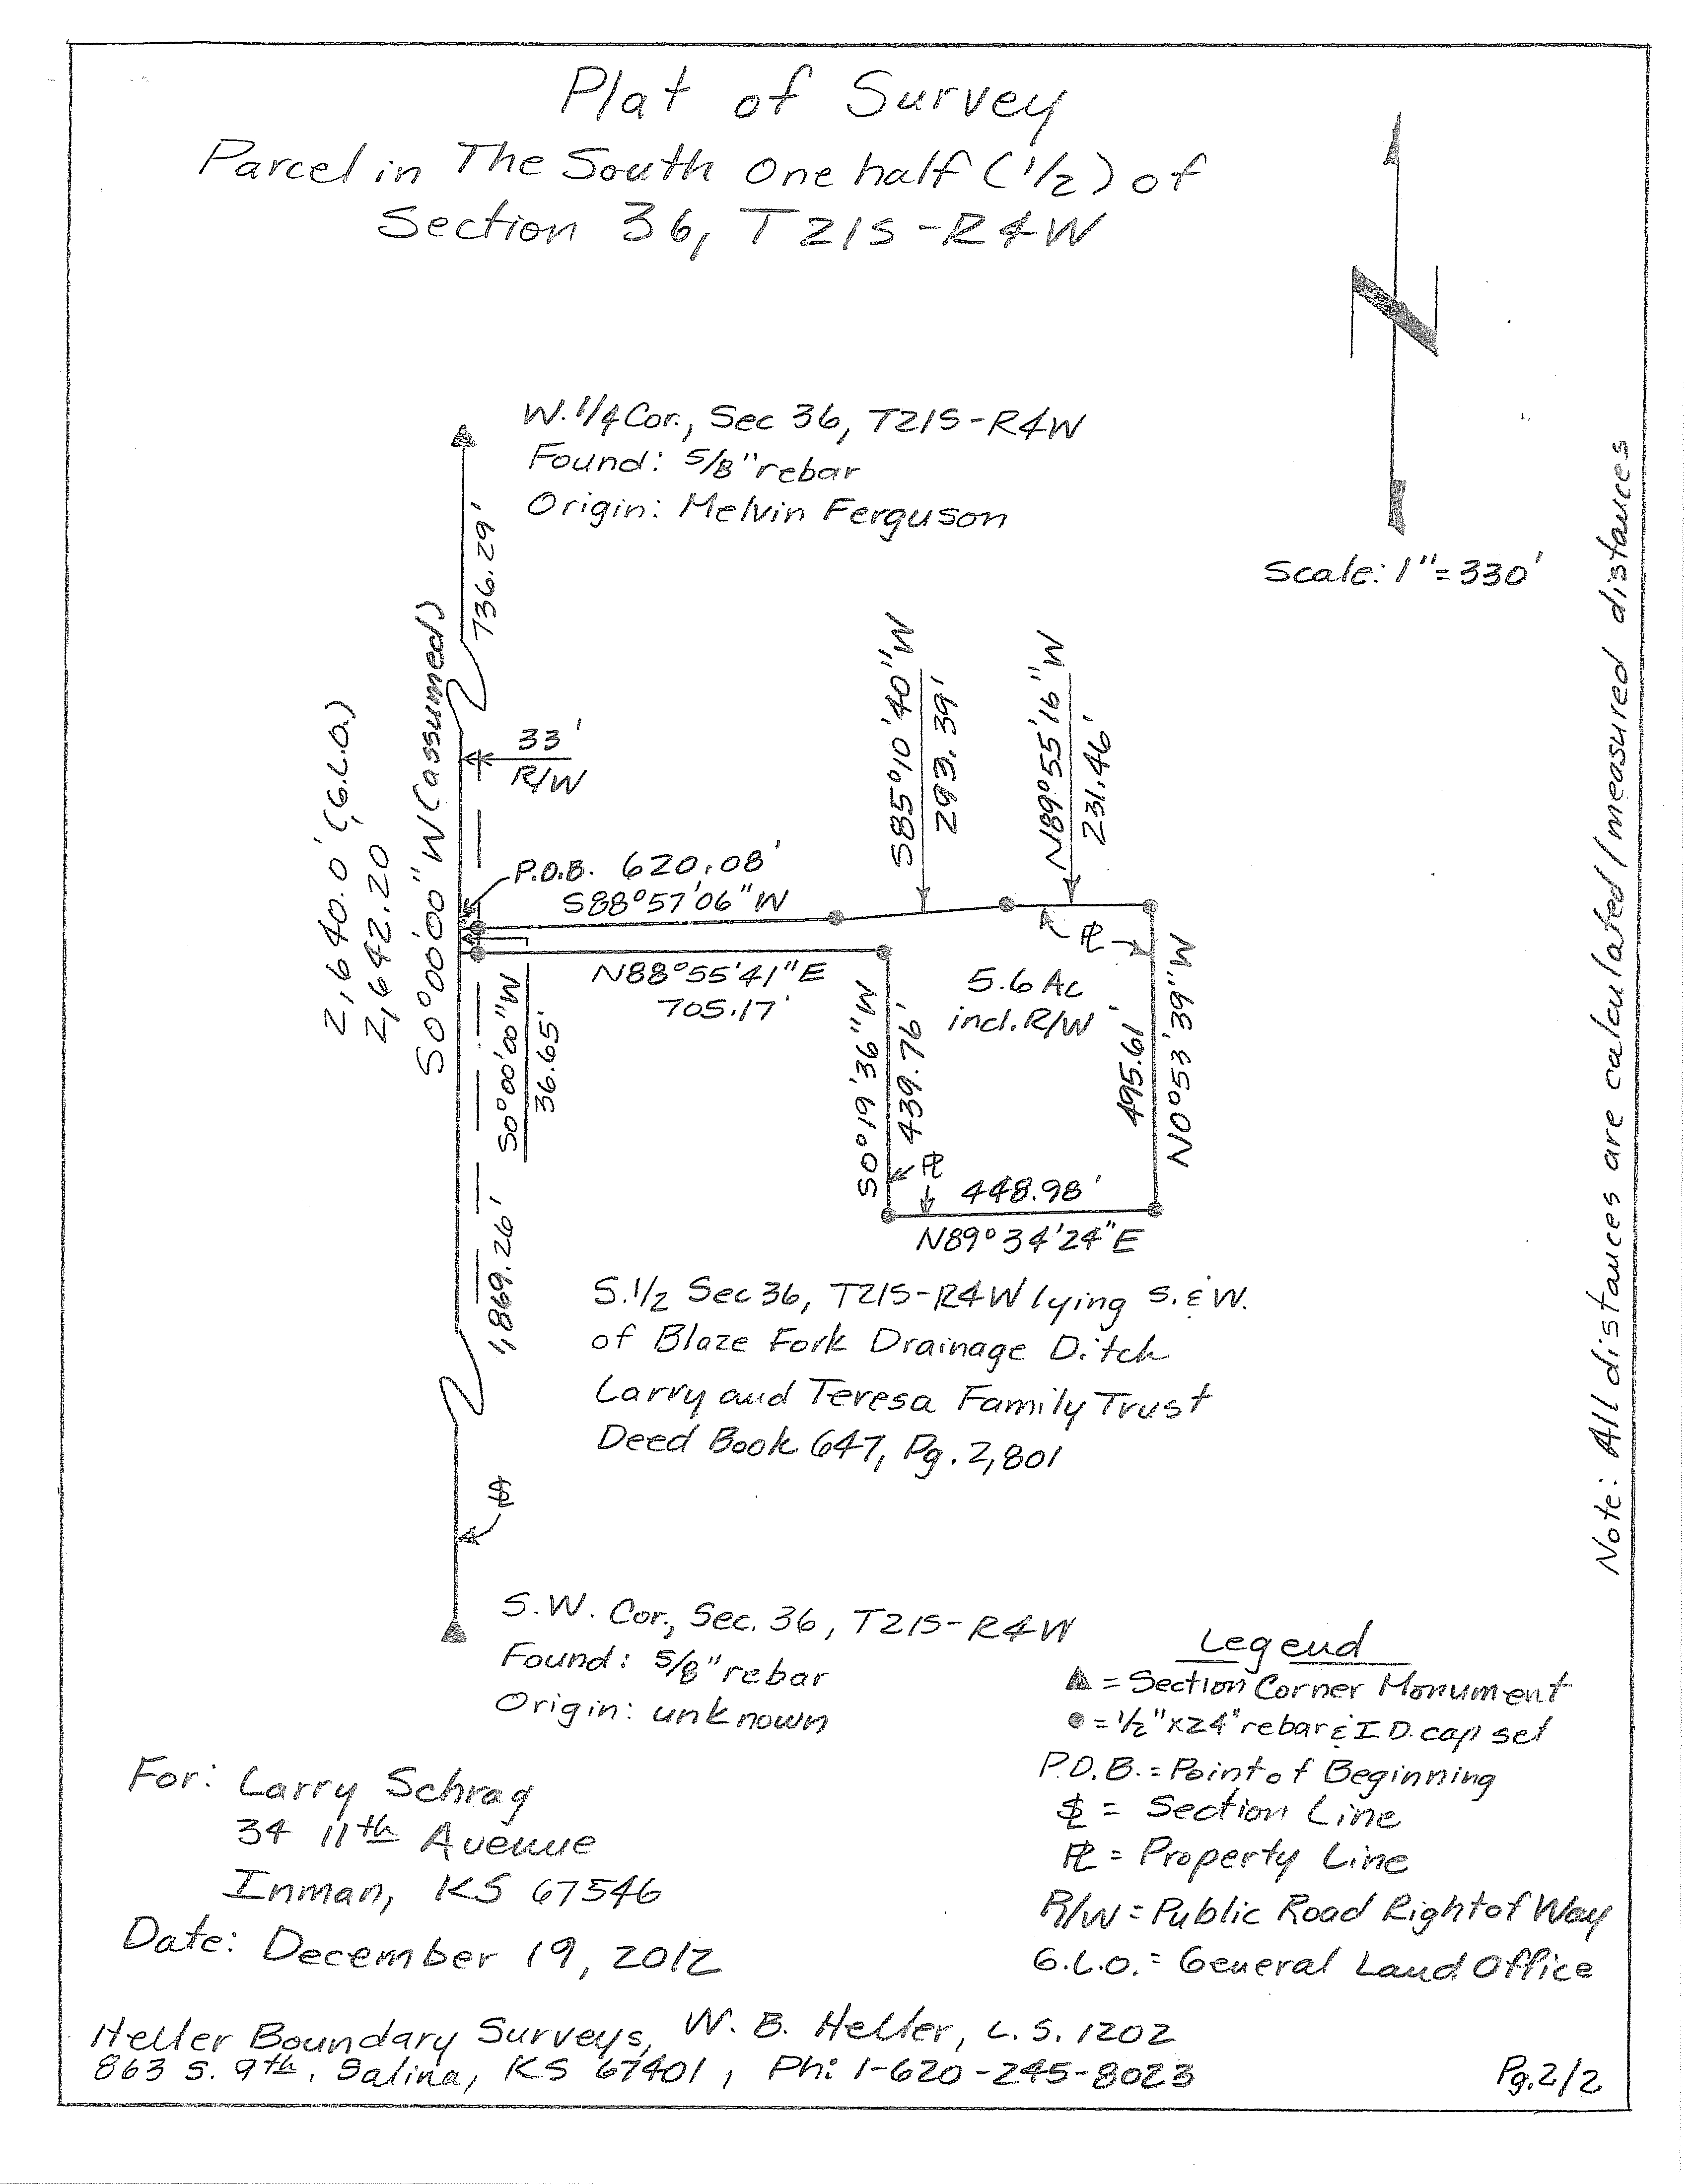 Plat of Survey
Parcel in The South One half (1/2) of
Section 36, T21S-R4W
W. 1/4 Cor., Sec 36, T21S-R4W
Found: 5/8" rebar
Origin: Melvin Ferguson
Scale: 1"=330'
736.29'
2,640.0' (G.L.O.)
2,642.20
S0°00'00"W (assumed)
33'
R/W
P.O.B. 620.08'
S88°57'06"W
S85°10'40"W
293.39'
N89°55'16"W
231.46'
N88°55'41"E
705.17'
S0°00'00"W
36.65'
S0°19'36"W
439.76'
PL
5.6 Ac
incl. R/W
495.61'
N0°53'39"W
PL
448.98'
N89°34'24"E
1,869.26'
S. 1/2 Sec 36, T21S-R4W lying S. & W.
of Blaze Fork Drainage Ditch
Larry and Teresa Family Trust
Deed Book 647, Pg. 2,801
SL
S.W. Cor., Sec. 36, T21S-R4W
Found: 5/8" rebar
Origin: unknown
Note: All distances are calculated/measured distances
Legend
▲ = Section Corner Monument
● = 1/2" x 24" rebar & I.D. cap set
P.O.B. = Point of Beginning
SL = Section Line
PL = Property Line
R/W = Public Road Right of Way
G.L.O. = General Land Office
For: Larry Schrag
34 11th Avenue
Inman, KS 67546
Date: December 19, 2012
Heller Boundary Surveys, W. B. Heller, L.S. 1202
863 S. 9th, Salina, KS 67401, Ph: 1-620-245-8023
Pg. 2/2